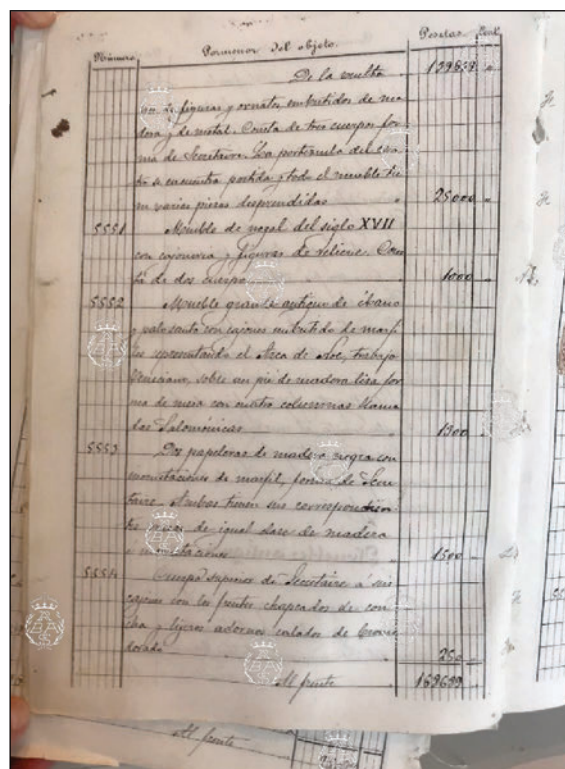 Número
Pormenor del objeto.
Pesetas
De la vuelta 139639
con de figuras y ornatos, embutidos de ma
dera y de metal. Consta de tres cuerpos for
ma de Secretaire. La portezuela del cen
tro se encuentra partida y todo el mueble tie
ne varias piezas desprendidas 25000
5551 Mueble de nogal del siglo XVII
con cajonería y figuras de relieve. Cons
ta de dos cuerpos 1000
5552 Mueble grande antiguo de ébano
y palo santo con cajones embutido de marfi
les representando el Arca de Noe, trabajo
Veneciano, sobre un pie de madera lisa for
ma de mesa con cuatro columnas llama
das Salomónicas 1300
5553 Dos papeleras de madera negra con
incrustaciones de marfil, forma de Secre
taire. Ambas tienen sus correspondien
tes mesas de igual clase de madera
e incrustaciones 1500
5554 Cuerpo superior de Secretaire á seis
cajones con los frentes chapeados de con
cha y ligeros adornos calados de bronce
dorado 250
Al frente 169699
Al frente